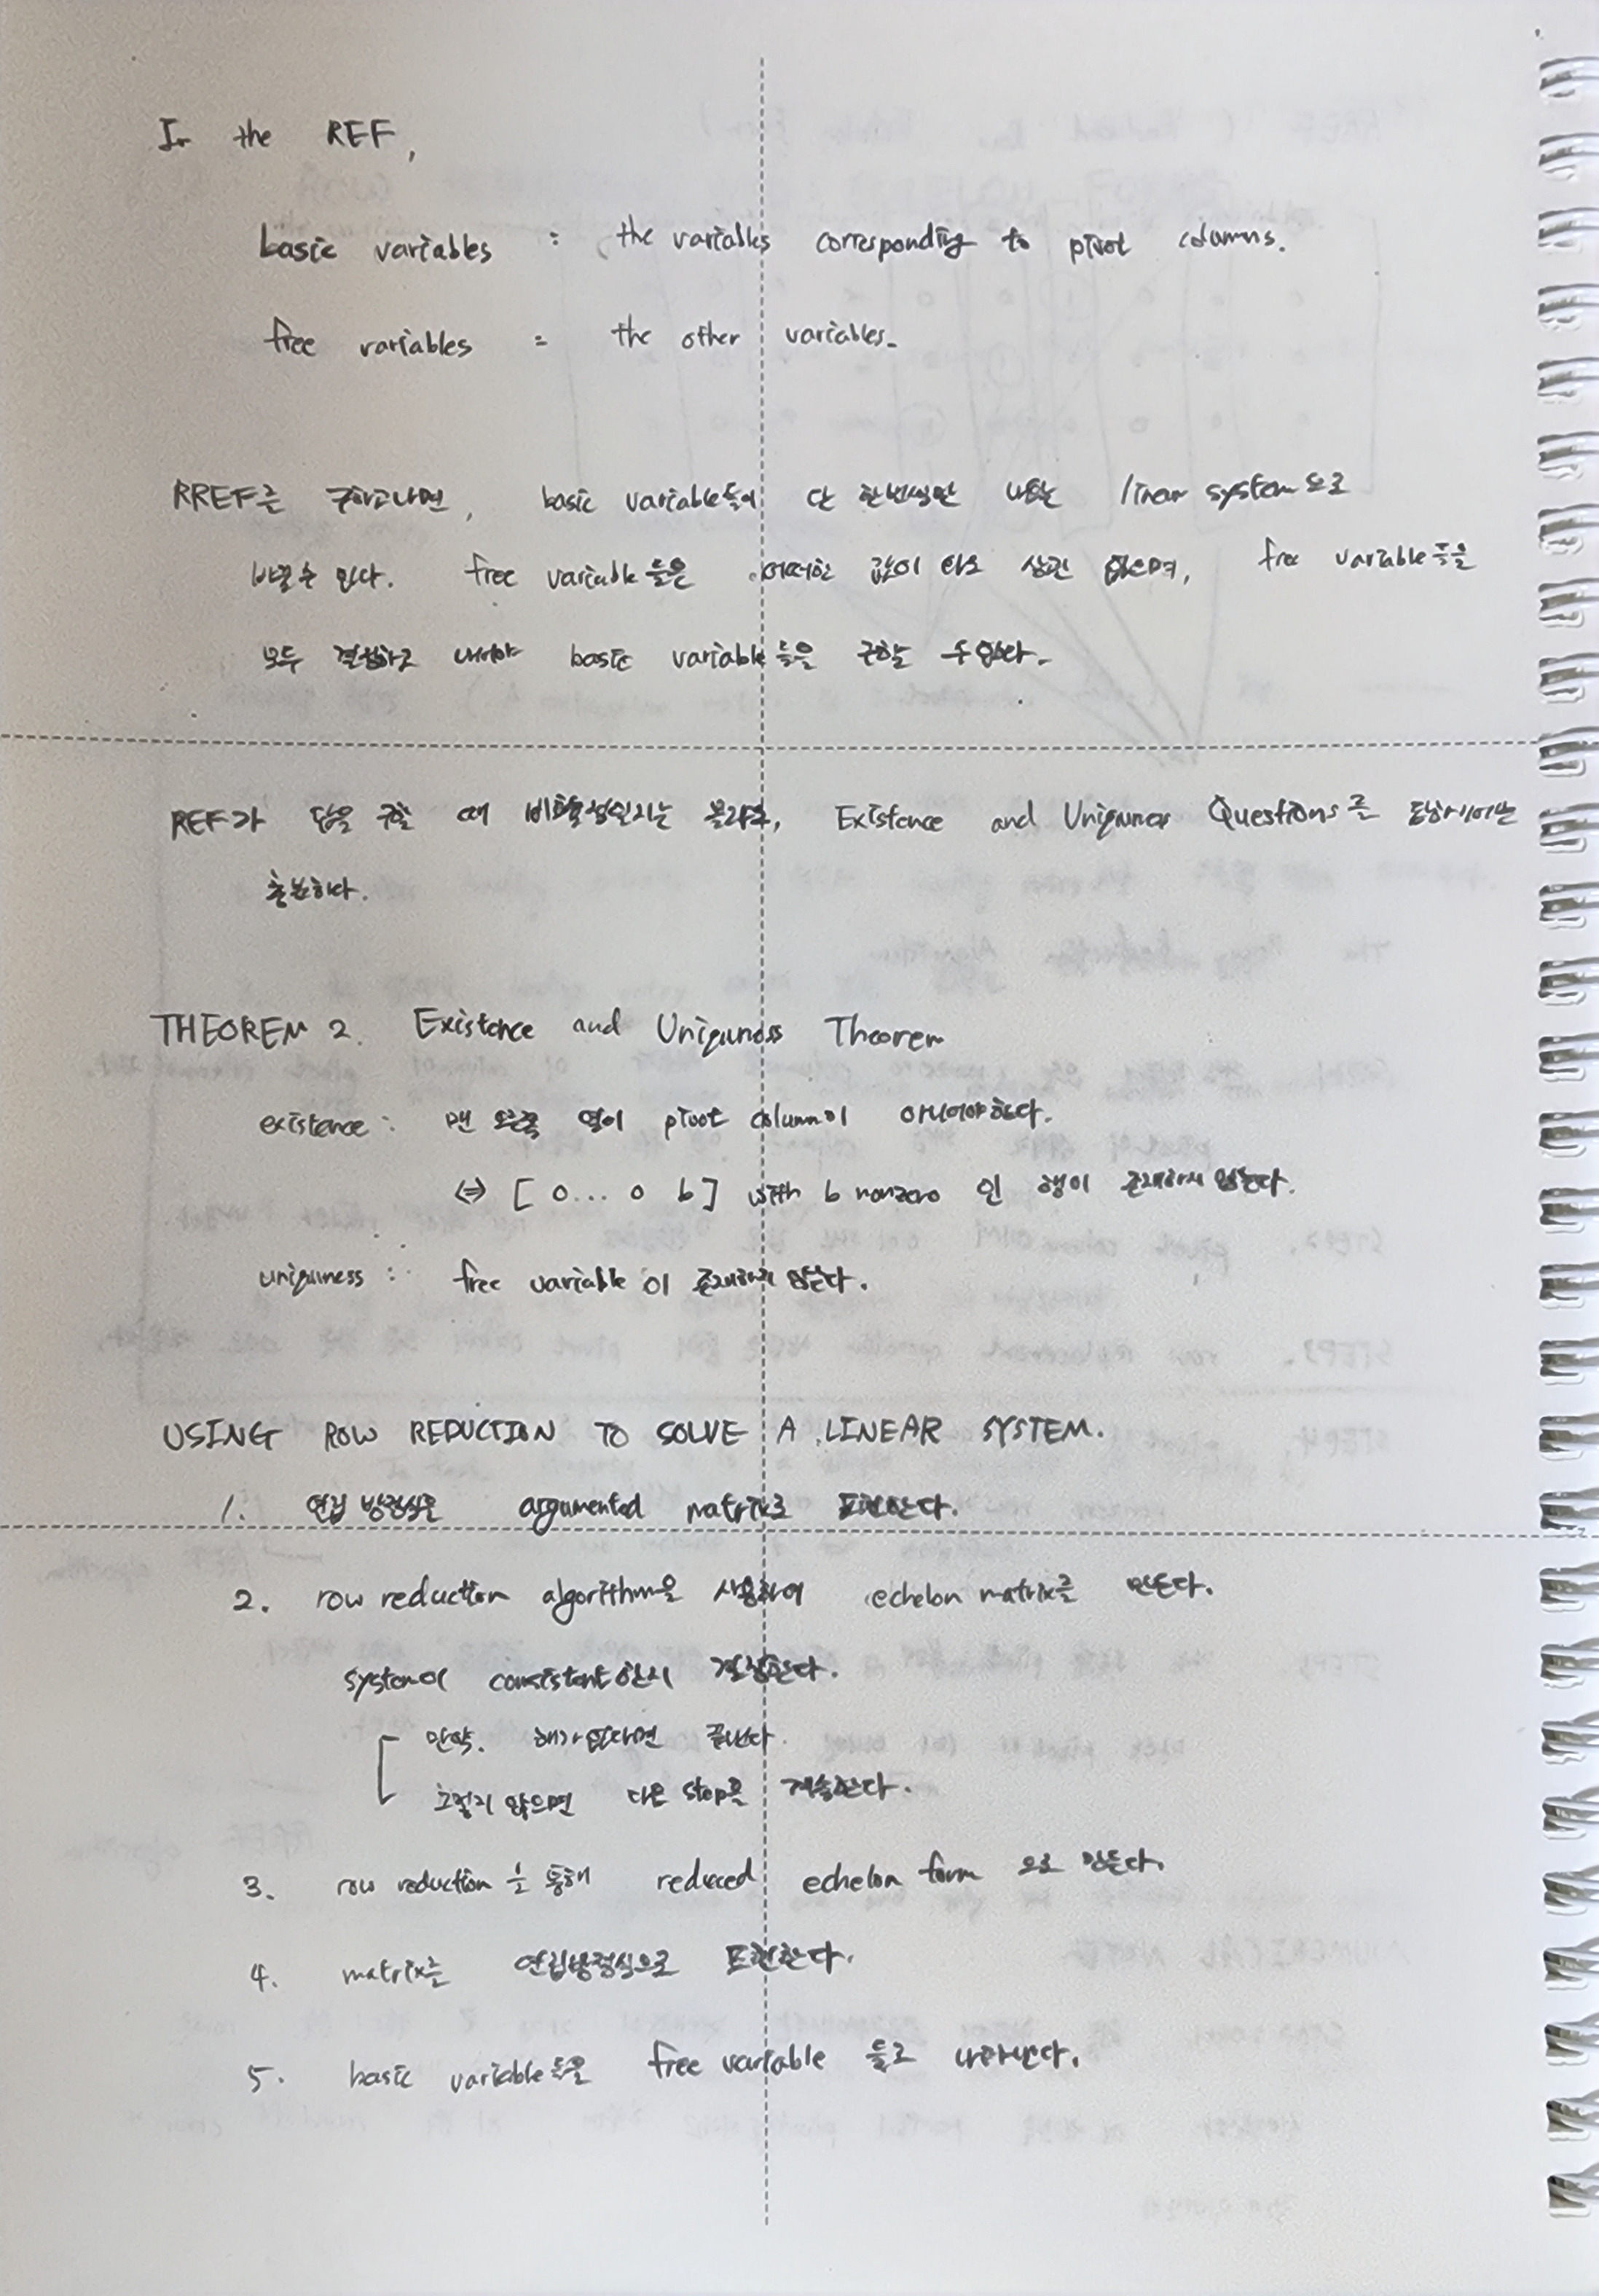 In the REF,
basic variables : the variables corresponding to pivot columns.
free variables : the other variables.
RREF를 구하고나면, basic variable들이 단 한번씩만 나오는 linear system으로
바꿀 수 있다. free variable들은 어떠한 값이 와도 상관 없으며, free variable들을
모두 결정하고 나서야 basic variable들을 구할 수 있다.
REF가 답을 구할 때 비효율적일지는 몰라도, Existence and Uniquness Questions를 답하기에는
충분하다.
THEOREM 2. Existence and Uniquness Theorem
existence : 맨 오른쪽 열이 pivot column이 아니어야한다.
⇔ [ 0... 0 b ] with b nonzero 인 행이 존재하지 않는다.
uniquness : free variable이 존재하지 않는다.
USING ROW REDUCTION TO SOLVE A LINEAR SYSTEM.
1. 연립 방정식을 argumented matrix로 표현한다.
2. row reduction algorithm을 사용하여 echelon matrix를 만든다.
system이 consistent한지 결정한다.
만약. 해가 없다면 끝난다.
그렇지 않으면 다음 step을 계속한다.
3. row reduction을 통해 reduced echelon form 으로 만든다.
4. matrix를 연립방정식으로 표현한다.
5. basic variable들을 free variable 들로 나타낸다.